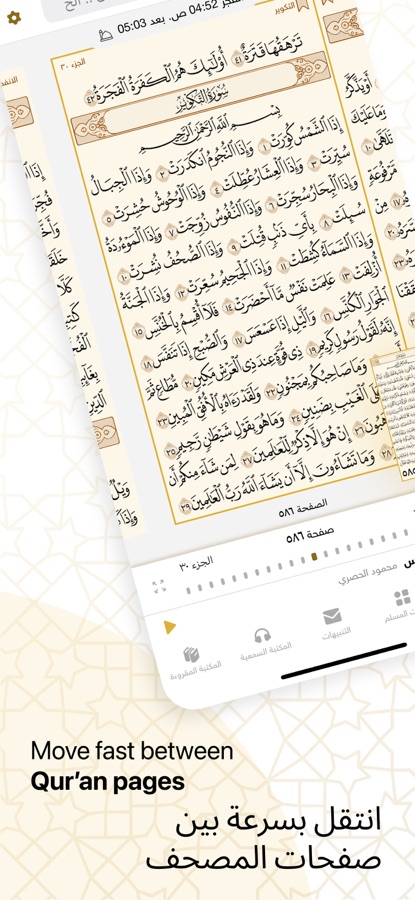 الفجر 04:52 ص. بعد 05:03
التكوير
الجزء ٣٠
تَرْهَقُهَا قَتَرَةٌ ٤١ أُوْلَٰٓئِكَ هُمُ ٱلْكَفَرَةُ ٱلْفَجَرَةُ ٤٢
سُورَةُ التَّكْوِيرِ
بِسْمِ ٱللَّهِ ٱلرَّحْمَٰنِ ٱلرَّحِيمِ
إِذَا ٱلشَّمْسُ كُوِّرَتْ ١ وَإِذَا ٱلنُّجُومُ ٱنكَدَرَتْ ٢ وَإِذَا ٱلْجِبَالُ
سُيِّرَتْ ٣ وَإِذَا ٱلْعِشَارُ عُطِّلَتْ ٤ وَإِذَا ٱلْوُحُوشُ حُشِرَتْ ٥
وَإِذَا ٱلْبِحَارُ سُجِّرَتْ ٦ وَإِذَا ٱلنُّفُوسُ زُوِّجَتْ ٧ وَإِذَا ٱلْمَوْءُۥدَةُ
سُئِلَتْ ٨ بِأَىِّ ذَنۢبٍ قُتِلَتْ ٩ وَإِذَا ٱلصُّحُفُ نُشِرَتْ ١٠
وَإِذَا ٱلسَّمَآءُ كُشِطَتْ ١١ وَإِذَا ٱلْجَحِيمُ سُعِّرَتْ ١٢ وَإِذَا ٱلْجَنَّةُ
أُزْلِفَتْ ١٣ عَلِمَتْ نَفْسٌ مَّآ أَحْضَرَتْ ١٤ فَلَآ أُقْسِمُ بِٱلْخُنَّسِ ١٥
ٱلْجَوَارِ ٱلْكُنَّسِ ١٦ وَٱلَّيْلِ إِذَا عَسْعَسَ ١٧ وَٱلصُّبْحِ إِذَا تَنَفَّسَ ١٨
إِنَّهُۥ لَقَوْلُ رَسُولٍ كَرِيمٍ ١٩ ذِى قُوَّةٍ عِندَ ذِى ٱلْعَرْشِ مَكِينٍ ٢٠ مُّطَاعٍ ثَمَّ
وَمَا صَاحِبُكُم بِمَجْنُونٍ ٢٢ وَلَقَدْ رَءَاهُ بِٱلْأُفُقِ ٱلْمُبِينِ ٢٣
عَلَى ٱلْغَيْبِ بِضَنِينٍ ٢٤ وَمَا هُوَ بِقَوْلِ شَيْطَٰنٍ رَّجِيمٍ ٢٥
٢٦ إِنْ هُوَ إِلَّا ذِكْرٌ لِّلْعَٰلَمِينَ ٢٧ لِمَن شَآءَ مِنكُمْ أَن
٢٨ وَمَا تَشَآءُونَ إِلَّآ أَن يَشَآءَ ٱللَّهُ رَبُّ ٱلْعَٰلَمِينَ ٢٩
الصفحة ٥٨٦
صفحة ٥٨٦
الجزء ٣٠
محمود الحصري
المسلم
التنبيهات
المكتبة السمعية
المكتبة المقروءة
Move fast between
Qur’an pages
انتقل بسرعة بين
صفحات المصحف